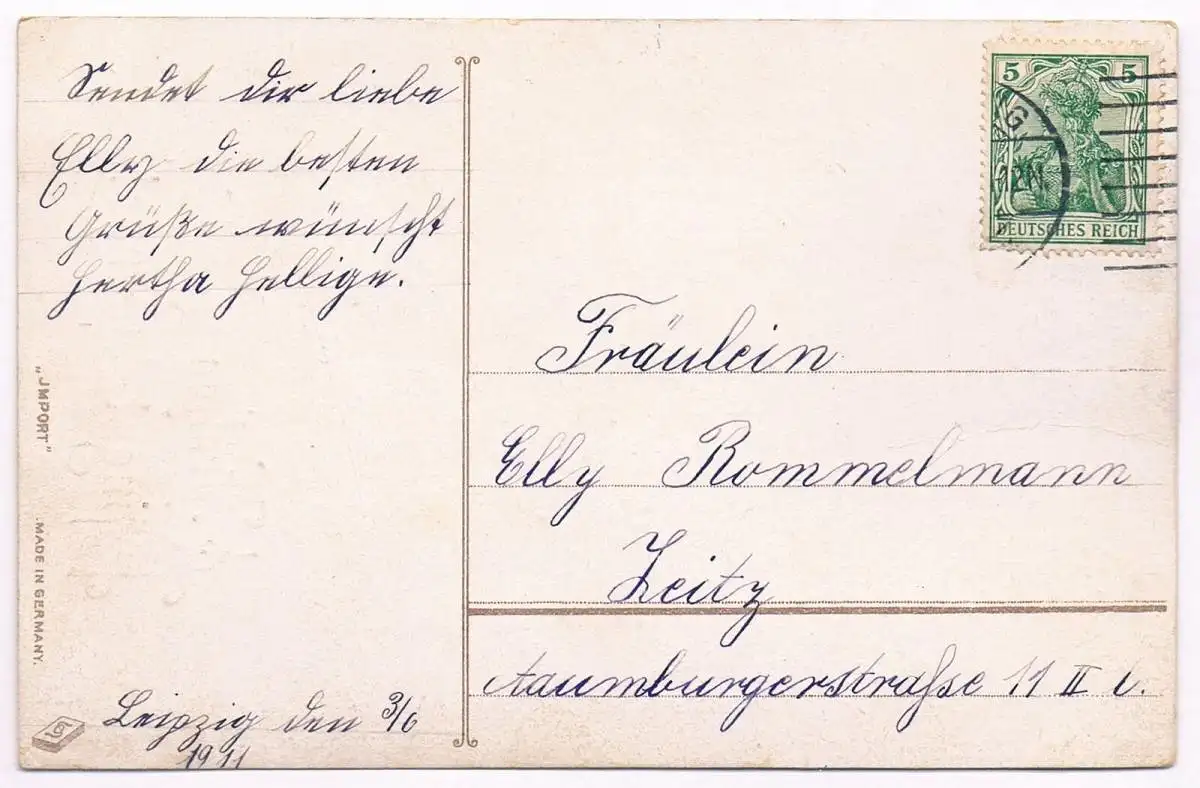 Sendet dir liebe
Elly die besten
Grüße wünscht
Hertha Hellige.
"JMPORT"
MADE IN GERMANY.
Leipzig den 3/6
1911
5 5
DEUTSCHES REICH
Fräulein
Elly Rommelmann
Zeitz
Naumburgerstraße 11 II l.